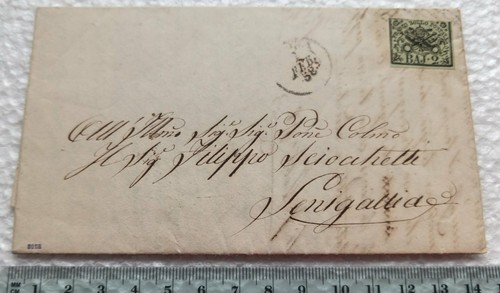 FEB
58
BAJ. 2
All' Illmo Sigr. Sigr. Pone Colmo
Il Sigr. Filippo Sciocchetti
Senigallia
8508
MM
CM
1 2 3 4 5 6 7 8 9 10 11 12 13 14